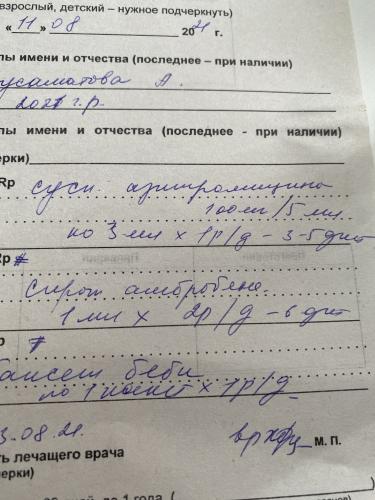 взрослый, детский – нужное подчеркнуть)
« 11 » 08 20 21 г.
лы имени и отчества (последнее – при наличии)
усаматова А.
2021 г.р.
лы имени и отчества (последнее - при наличии)
ерки)
Rp сусп. азитромицина
100мг/5 мл.
по 3 мл х 1р/д – 3-5 дней
Rp
сироп амбробене
1 мл х 2р/д – 6 дней
p
беби
по 1 х 1р/д
3.08.21.
ть лечащего врача
М. П.
ерки)
до 1 года (